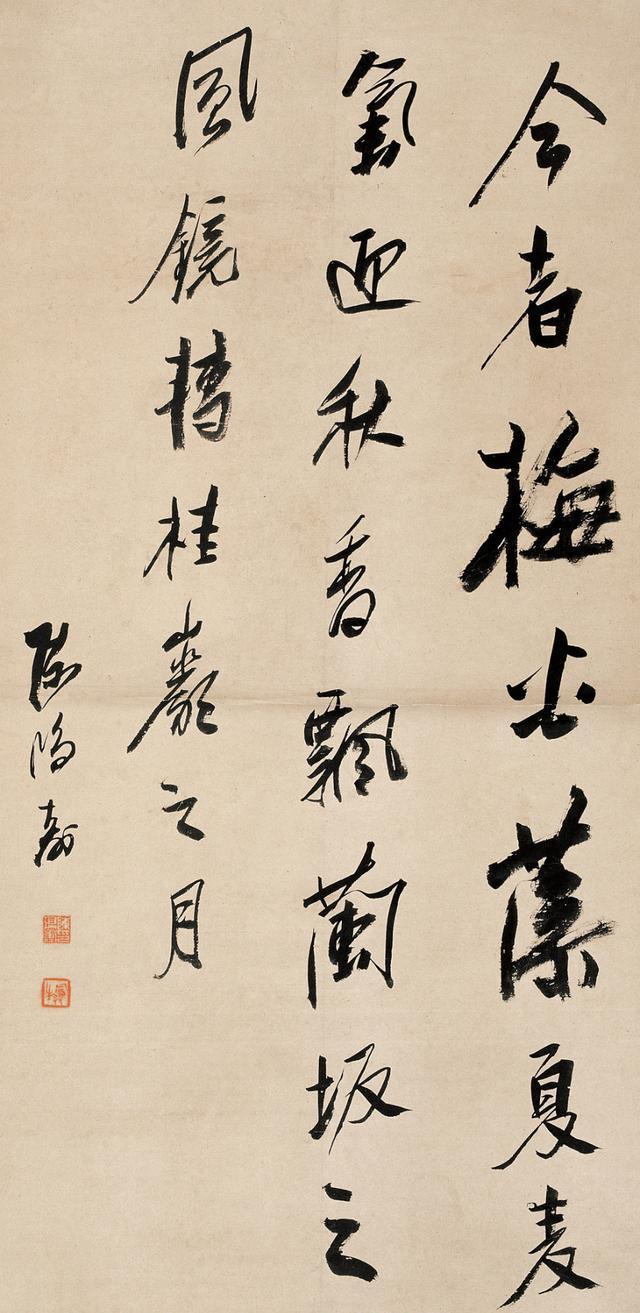 今者梅炎藻夏麦
氣迎秋香飄蘭坂之
風鏡轉桂巖之月
陳鴻壽